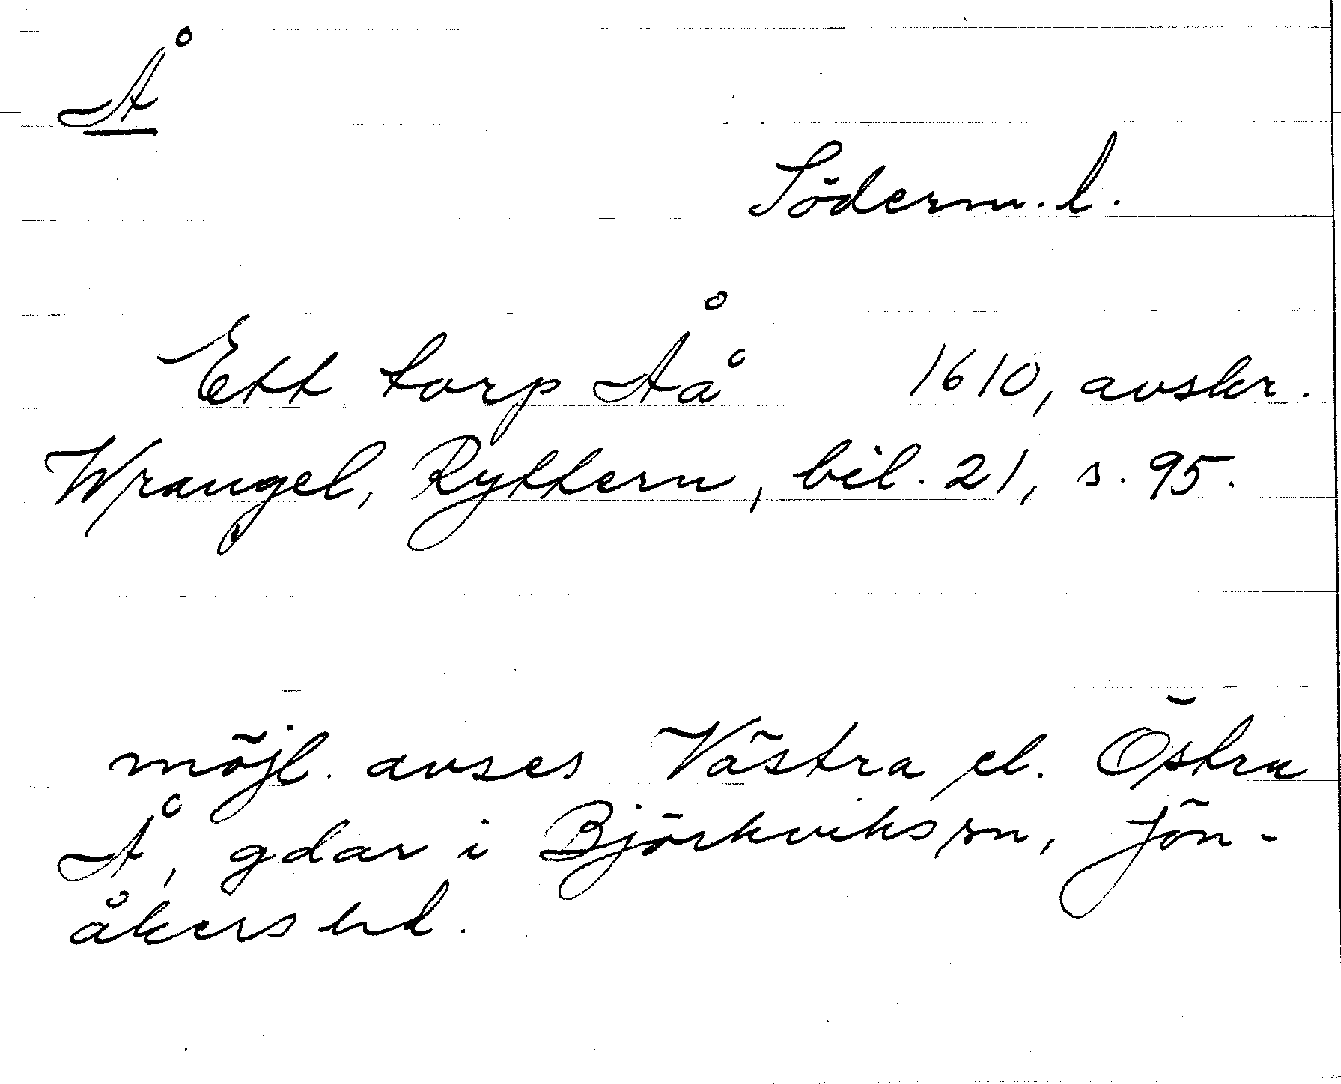 Å
Söderm. l.
Ett torp Åå 1610, avskr.
Wrangel, Ryttern, bil. 21, s. 95.
möjl. avses Västra el. Östra
Å, gdar i Björkviks sn, Jön-
åkers hd.